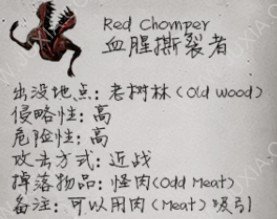 Red Chomper
血腥撕裂者
出没地点：老树林（Old Wood）
侵略性：高
危险性：高
攻击方式：近战
掉落物品：怪肉(Odd Meat)
备注：可以用肉（Meat）吸引